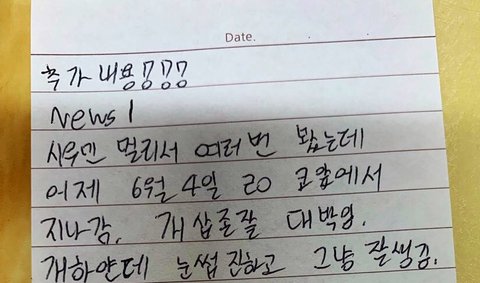 Date.
추가내용!!!
News 1
시우민 멀리서 여러번 봤는데
어제 6월 4일 20 코앞에서
지나감. 개삽존잘 대박임.
개하얀데 눈썹 진하고 그냥 잘생김.